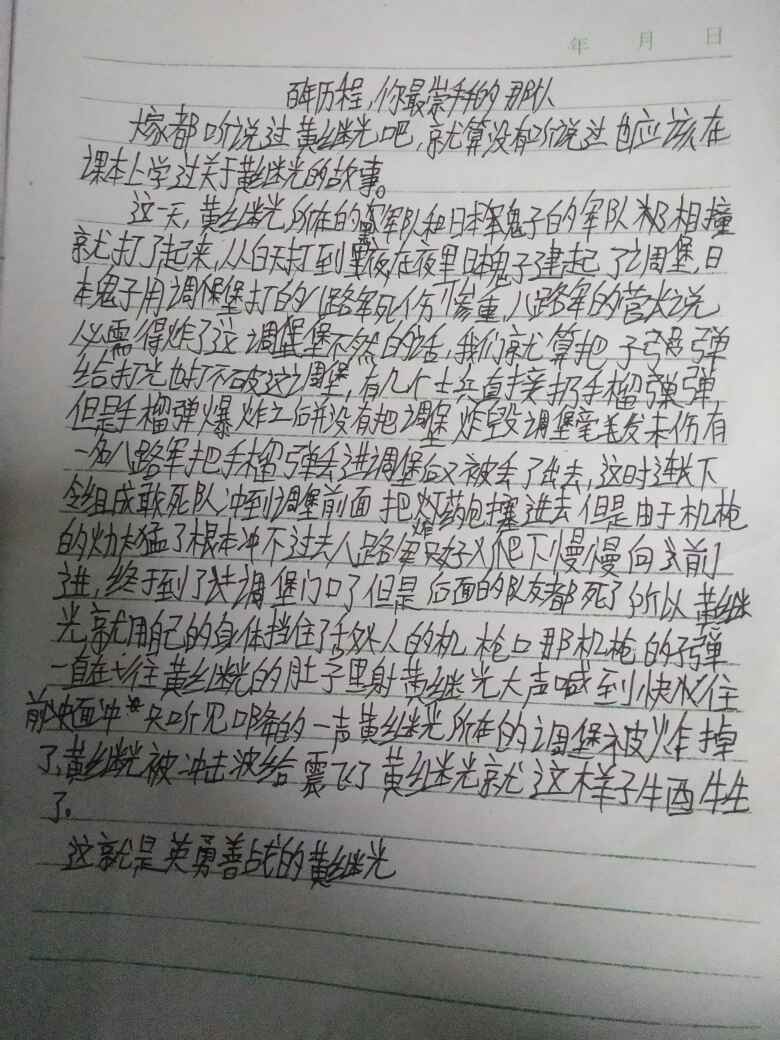 年 月 日
百年历程,你最崇拜的那队
大家都听说过黄继光吧,就算没有听说过也应该在
课本上学过关于黄继光的故事。
这一天,黄继光所在的军队和日本军鬼子的军队相撞
就打了起来,从白天打到黑夜,在夜里日本鬼子建起了调堡,日
本鬼子用调保堡打的八路军死伤惨重,八路军的营长说
必需得炸了这调堡不然的话,我们就算把子弹
给打光也打不破这调堡,有几个士兵直接扔手榴弹,
但是手榴弹爆炸之后并没有把调堡炸毁调堡毫毛发未伤有
一名八路军把手榴弹丢进调堡后又被丢了出去,这时连长下
令组成敢死队冲到调堡前面把炸药包塞进去但是由于机枪
的火力太猛了根本冲不过去八路军只好爬下慢慢向前
进,终于到了调堡门口了但是后面的队友都死了所以黄继
光就用自己的身体挡住了敌人的机枪口那机枪的子弹
一直在往黄继光的肚子里射黄继光大声喊到快往
前冲只听见口隆的一声黄继光所在的调堡被炸掉
了,黄继光被冲击波给震飞了黄继光就这样子牛西牛生
了.
这就是英勇善战的黄继光